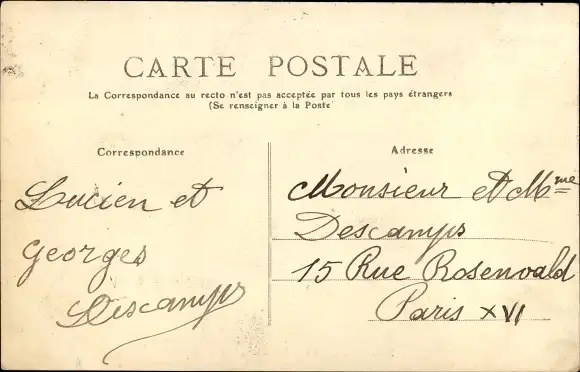 CARTE POSTALE
La Correspondance au recto n'est pas acceptée par tous les pays étrangers
(Se renseigner à la Poste
Correspondance
Lucien et
Georges
Descamps
Adresse
Monsieur et Mme
Descamps
15 Rue Rosenwald
Paris XVI